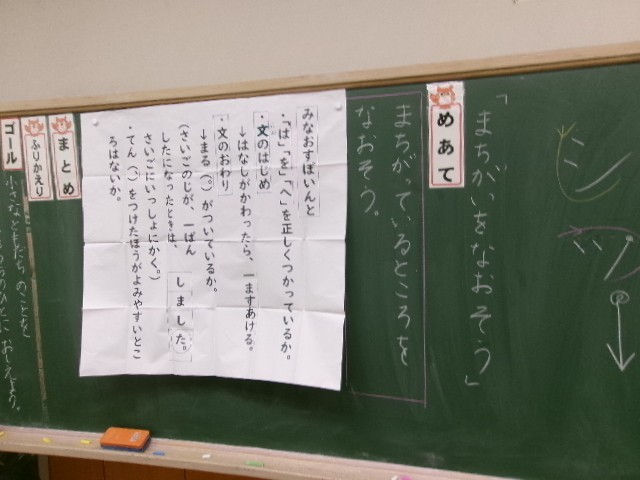 シ
ツ
「まちがいをなおそう」
めあて
まちがっているところを
なおそう。
みなおすぽいんと
・「は」「を」「へ」を正しくつかっているか。
・文のはじめ
→はなしがかわったら、一ますあける。
・文のおわり
→まる(。)がついているか。
(さいごのじが、一ばん
したになったときは、
さいごにいっしょにかく。)
しました。
・てん(、)をつけたほうがよみやすいとこ
ろはないか。
まとめ
ふりかえり
ゴール
小さなともだちのことを
のひとにおしえよう。